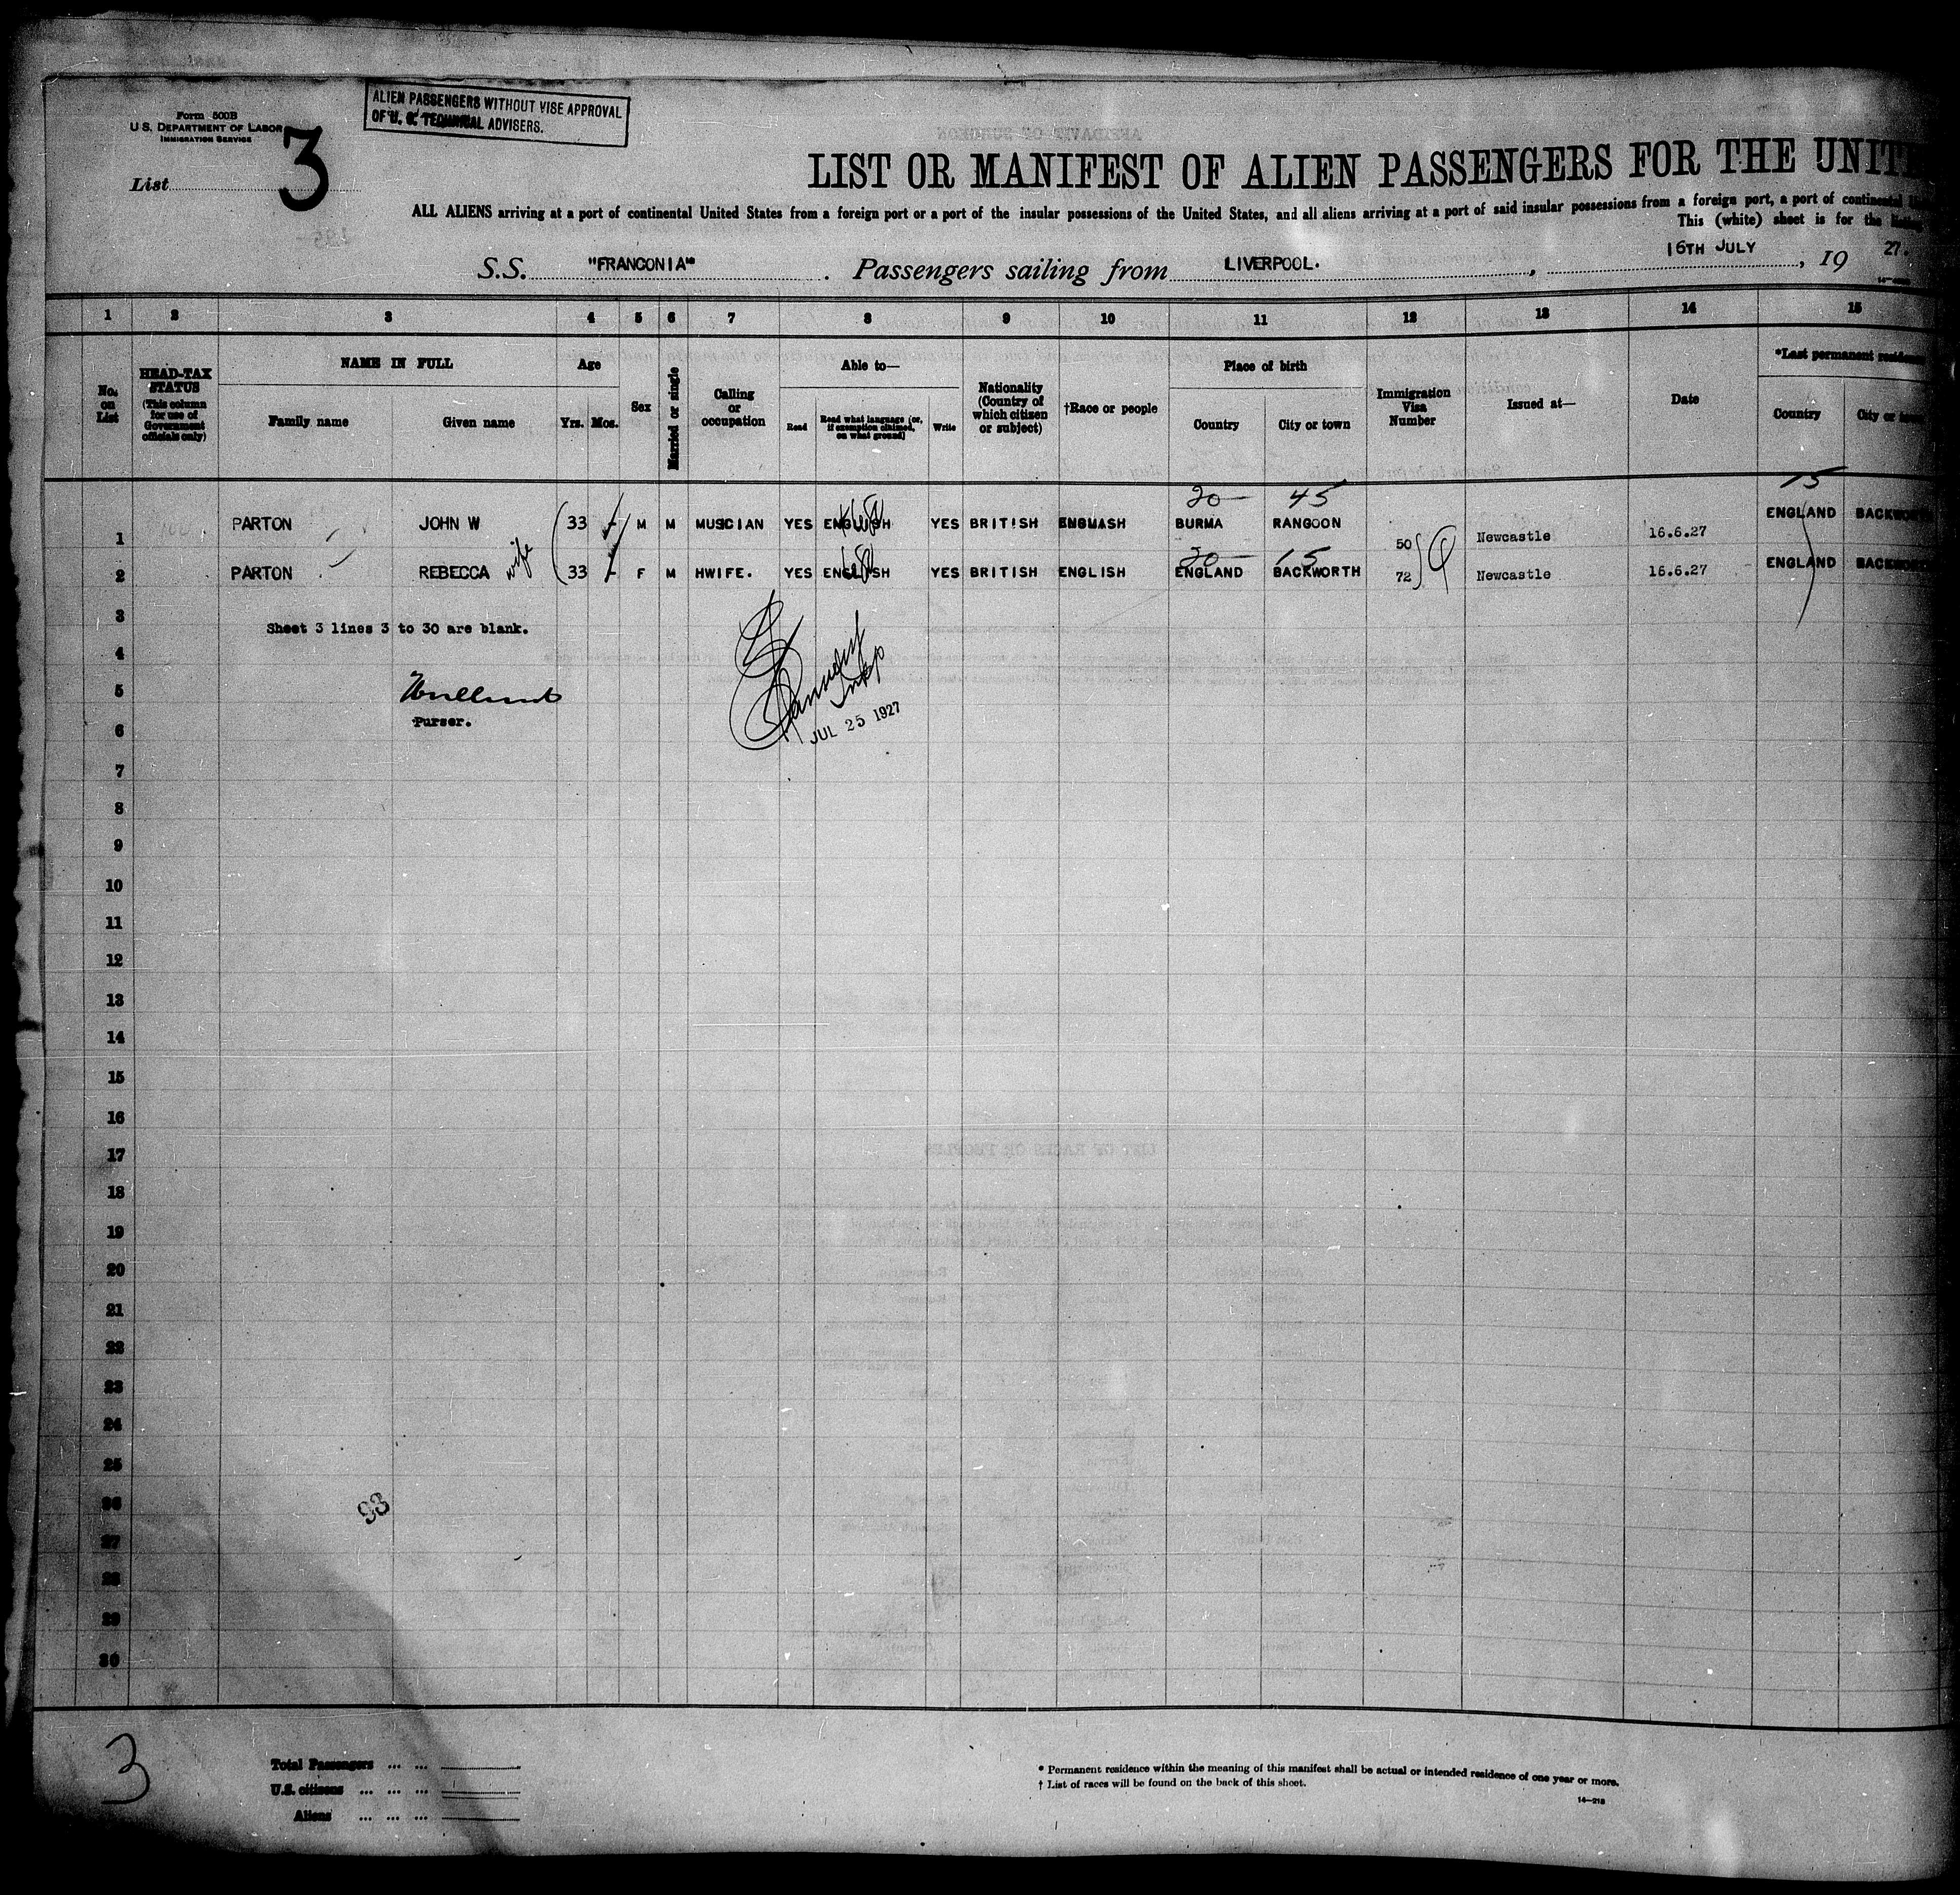 Form 500B
U. S. DEPARTMENT OF LABOR
IMMIGRATION SERVICE
List 3
ALIEN PASSENGERS WITHOUT VISE APPROVAL
OF U. S. TECHNICAL ADVISERS.
LIST OR MANIFEST OF ALIEN PASSENGERS FOR THE UNIT
ALL ALIENS arriving at a port of continental United States from a foreign port or a port of the insular possessions of the United States, and all aliens arriving at a port of said insular possessions from a foreign port, a port of continental
This (white) sheet is for the listing
S.S. "FRANCONIA" . Passengers sailing from LIVERPOOL. , 16TH JULY , 19 27.
1 2 3 4 5 6 7 8 9 10 11 12 13 14 15
No. on List
HEAD-TAX STATUS (This column for use of Government officials only)
NAME IN FULL
Family name Given name
Age
Yrs. Mos.
Sex
Married or single
Calling or occupation
Able to—
Read
Read what language (or, if exemption claimed, on what ground)
Write
Nationality (Country of which citizen or subject)
†Race or people
Place of birth
Country City or town
Immigration Visa Number
Issued at—
Date
*Last permanent residence
Country City or town
20— 45 15
1 PARTON JOHN W 33 - M M MUSICIAN YES ENGLISH YES BRITISH ENGLISH BURMA RANGOON 50 Newcastle 16.6.27 ENGLAND BACKWORTH
20— 15
2 PARTON REBECCA wife 33 - F M HWIFE. YES ENGLISH YES BRITISH ENGLISH ENGLAND BACKWORTH 72 Newcastle 16.6.27 ENGLAND BACKWORTH
3
Sheet 3 lines 3 to 30 are blank.
4
5
Purser.
Insp
JUL 25 1927
6
7
8
9
10
11
12
13
14
15
16
17
18
19
20
21
22
23
24
25
26
93
27
28
29
30
3
Total Passengers ... ...
U.S. citizens ... ... ...
Aliens ... ... ...
* Permanent residence within the meaning of this manifest shall be actual or intended residence of one year or more.
† List of races will be found on the back of this sheet.
14—218